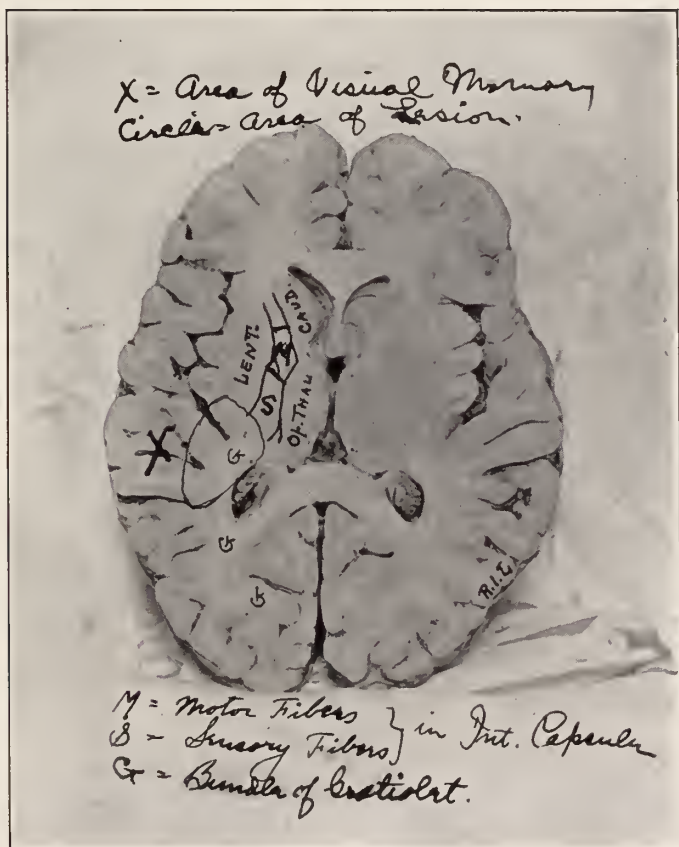 X = Area of Visual Memory
Circle = Area of Lesion.
CAUD.
LENT.
M
S
OP. THAL
X
G
G
G
R.I.E
M = Motor Fibers } in Int. Capsule
S = Sensory Fibers
G = Bundle of Gratiolet.